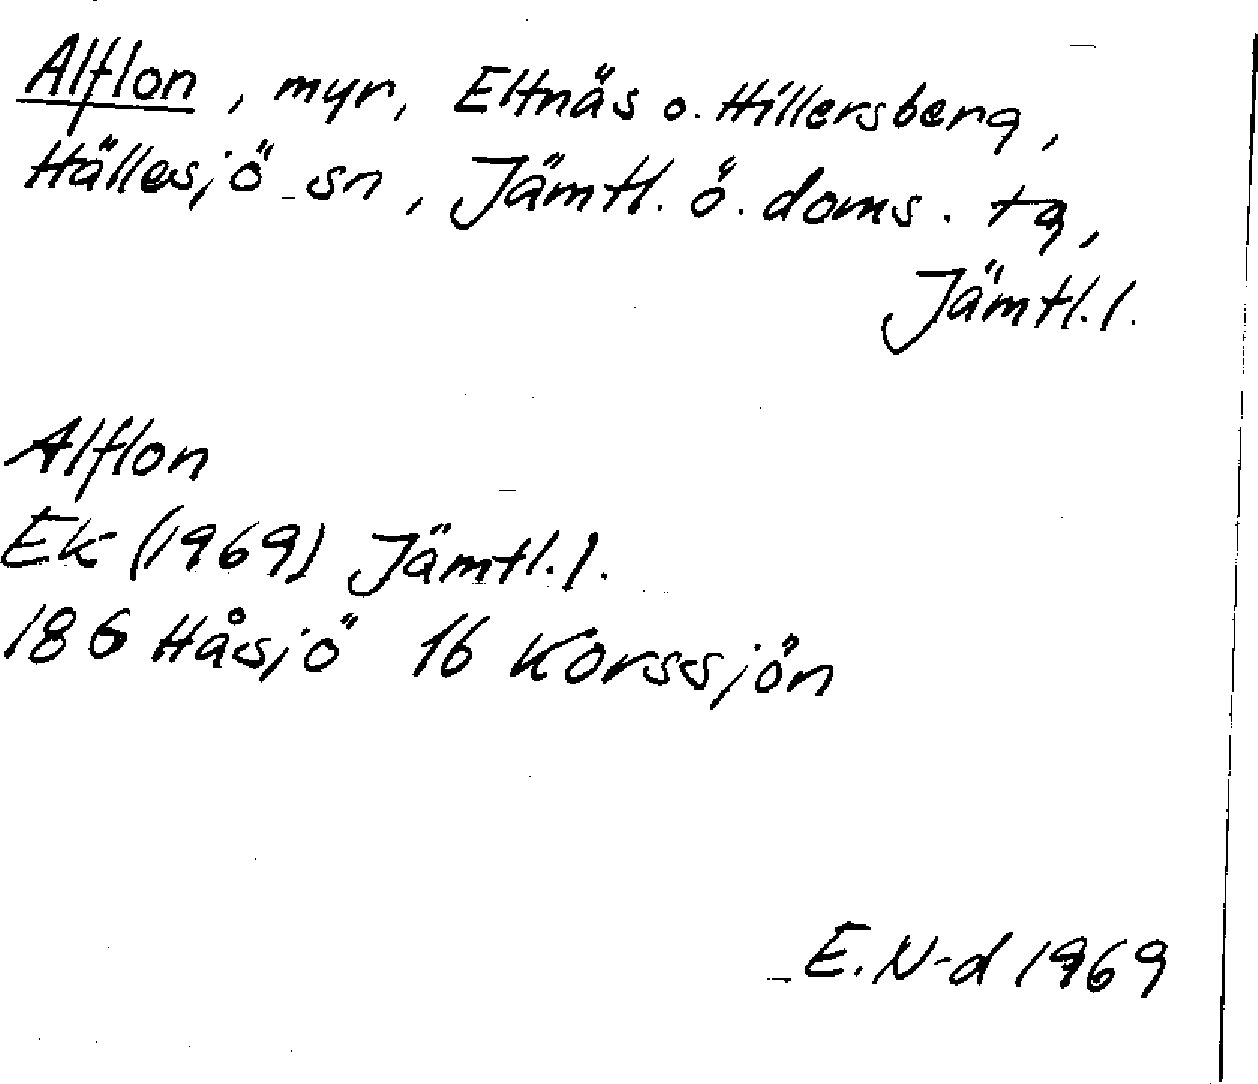 Alflon, myr, Eltnäs o. Hillersberg,
Hällesjö sn, Jämtl. ö. doms. tg,
Jämtl. l.
Alflon
Ek (1969) Jämtl. l.
186 Håsjö 16 Korssjön
E. N-d 1969